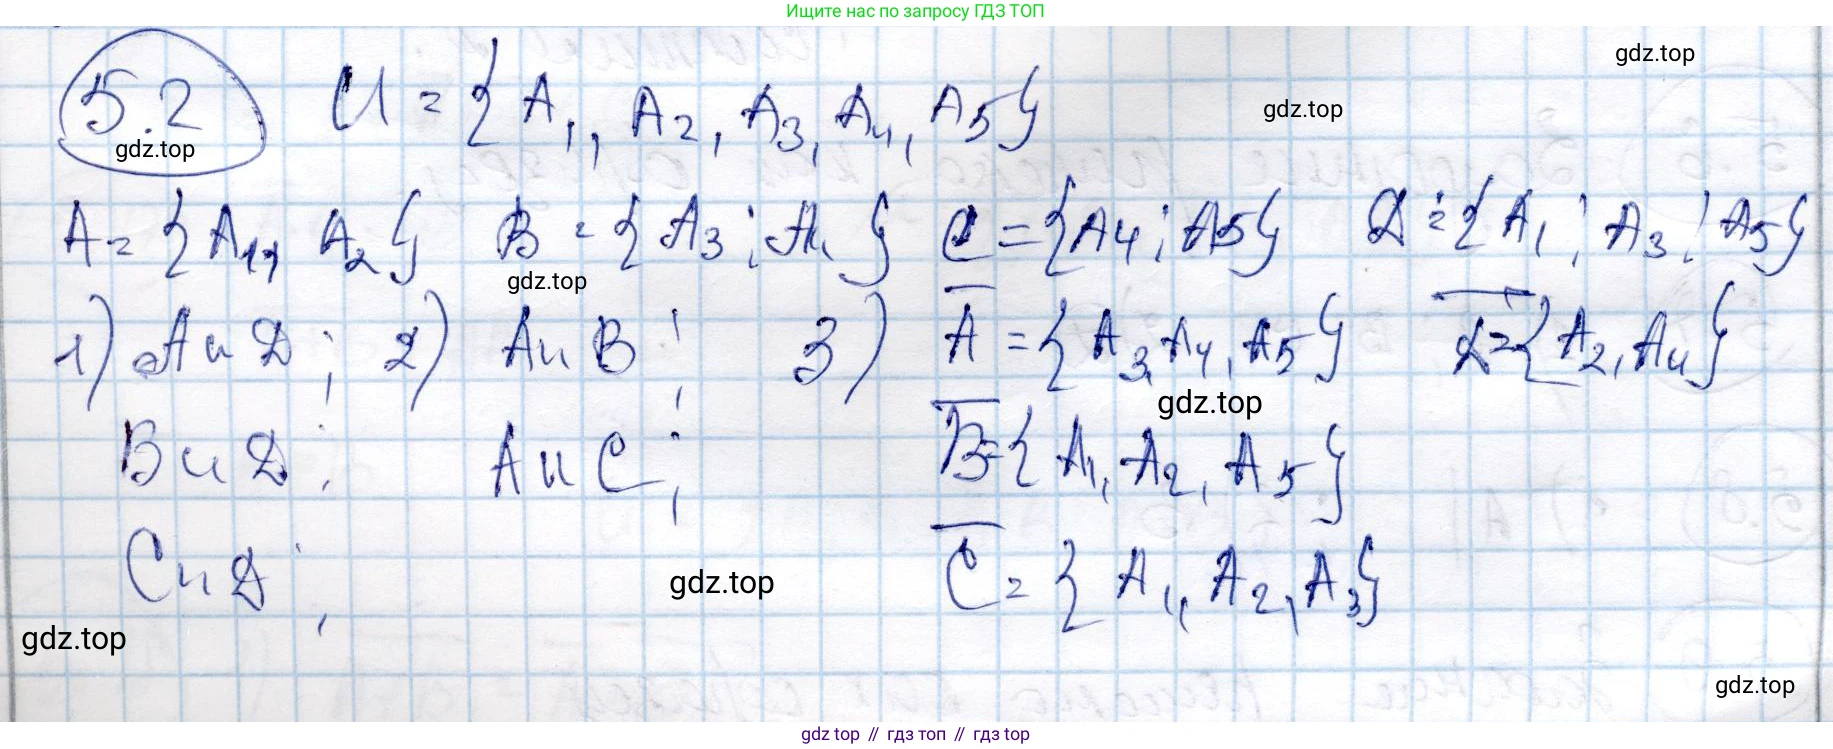 Ищите нас по запросу ГДЗ ТОП
gdz.top
5.2 U = { A1, A2, A3, A4, A5}
gdz.top
gdz.top
A = { A1, A2 } B = { A3 ; A } C = {A4 ; A5} D = { A1 ; A3 ; A5}
gdz.top
1) A и D ; 2) A и B ; 3) A̅ = { A3, A4, A5} D̅ = { A2, A4}
gdz.top
B и D ; A и C ; B̅ = { A1, A2, A5}
C и D ; C̅ = { A1, A2, A3}
gdz.top
gdz.top
gdz.top
gdz top // гдз топ // гдз top